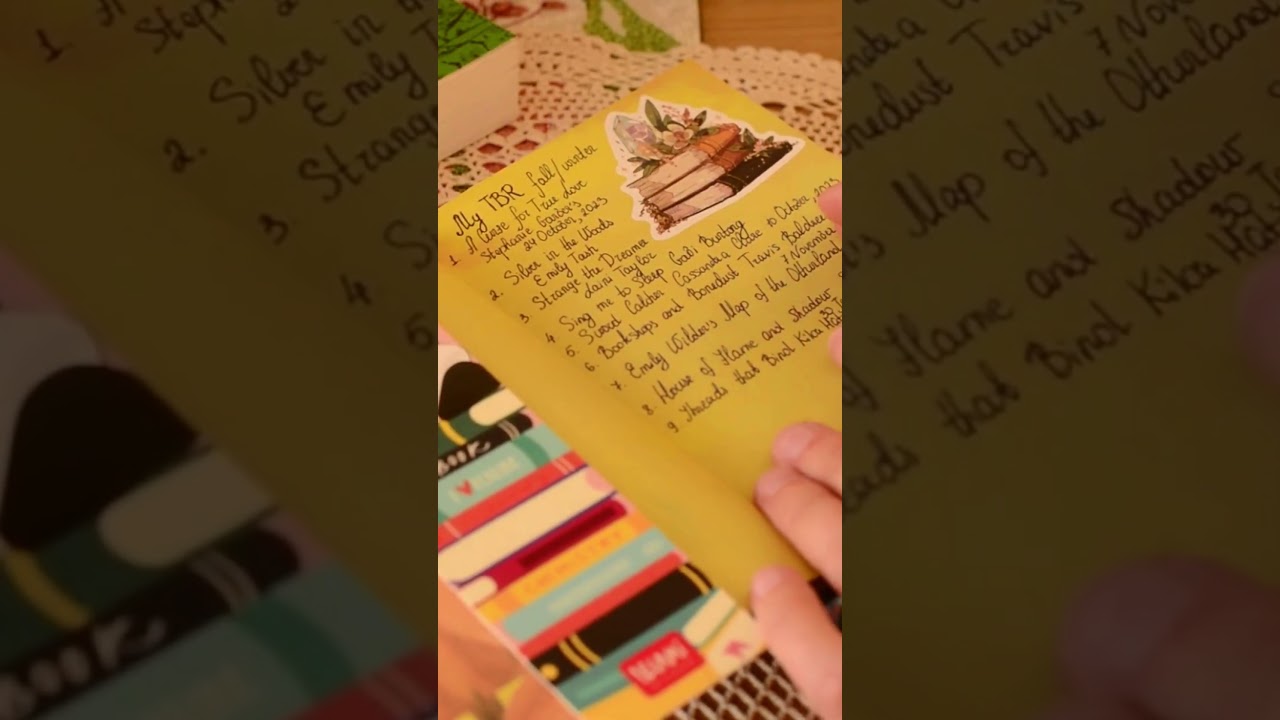 My TBR fall/winter
1. A Curse for True Love
Stephanie Garbers
24 October, 2023
2. Silver in the Woods
Emily Tash
3. Strange the Dreamer
Laini Taylor
4. Sing me to Sleep Gabi Burtong
5. Sword Catcher Cassandra Clare 10 October, 2023
6. Bookshops and Bonedust Travis Baldree
7 November
7. Emily Wilde's Map of the Otherland
8 House of Flame and Shadow
30
9 Threads that Bind Kika Hatz
BOOK